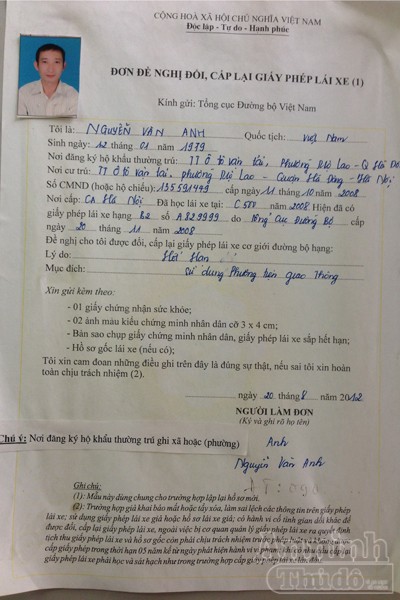 CỘNG HOÀ XÃ HỘI CHỦ NGHĨA VIỆT NAM
Độc lập - Tự do - Hạnh phúc
ĐƠN ĐỀ NGHỊ ĐỔI, CẤP LẠI GIẤY PHÉP LÁI XE (1)
Kính gửi: Tổng cục Đường bộ Việt Nam
Tôi là: NGUYỄN VĂN ANH Quốc tịch: Việt Nam
Sinh ngày: 12 tháng 01 năm 1979
Nơi đăng ký hộ khẩu thường trú: TT Ô tô vận tải, Phường Mộ Lao - Q Hà Đô
Nơi cư trú: TT Ô tô vận tải, phường Mộ Lao - Quận Hà Đông - Hà Nội
Số CMND (hoặc hộ chiếu): 135591449 cấp ngày 11 tháng 10 năm 2008
Nơi cấp: CA Hà Nội Đã học lái xe tại: C500 năm 2008 Hiện đã có
giấy phép lái xe hạng B2 số A829999 do Tổng Cục Đường Bộ cấp
ngày 20 tháng 11 năm 2008
Đề nghị cho tôi được đổi, cấp lại giấy phép lái xe cơ giới đường bộ hạng:
Lý do: Hết Hạn
Mục đích: Sử dụng Phương tiện giao Thông
Xin gửi kèm theo:
- 01 giấy chứng nhận sức khỏe;
- 02 ảnh màu kiểu chứng minh nhân dân cỡ 3 x 4 cm;
- Bản sao chụp giấy chứng minh nhân dân, giấy phép lái xe sắp hết hạn;
- Hồ sơ gốc lái xe (nếu có);
Tôi xin cam đoan những điều ghi trên đây là đúng sự thật, nếu sai tôi xin hoàn
toàn chịu trách nhiệm (2).
ngày 20 tháng 8 năm 2012
NGƯỜI LÀM ĐƠN
(Ký và ghi rõ họ tên)
Chú ý: Nơi đăng ký hộ khẩu thường trú ghi xã hoặc (phường)
Anh
Nguyễn Văn Anh
Ghi chú:
(1): Mẫu này dùng chung cho trường hợp lập lại hồ sơ mới.
(2): Trường hợp giả khai báo mất hoặc tẩy xóa, làm sai lệch các thông tin trên giấy phép
lái xe; sử dụng giấy phép lái xe giả hoặc hồ sơ lái xe giả; có hành vi cố tình gian dối khác để
được đổi, cấp lại giấy phép lái xe, ngoài việc bị cơ quan quản lý giấy phép lái xe ra quyết định
tịch thu giấy phép lái xe và hồ sơ gốc còn phải chịu trách nhiệm trước pháp luật và không được
cấp giấy phép trong thời hạn 05 năm kể từ ngày phát hiện hành vi vi phạm
lái xe phải học và sát hạch như trong trường hợp cấp giấy phép